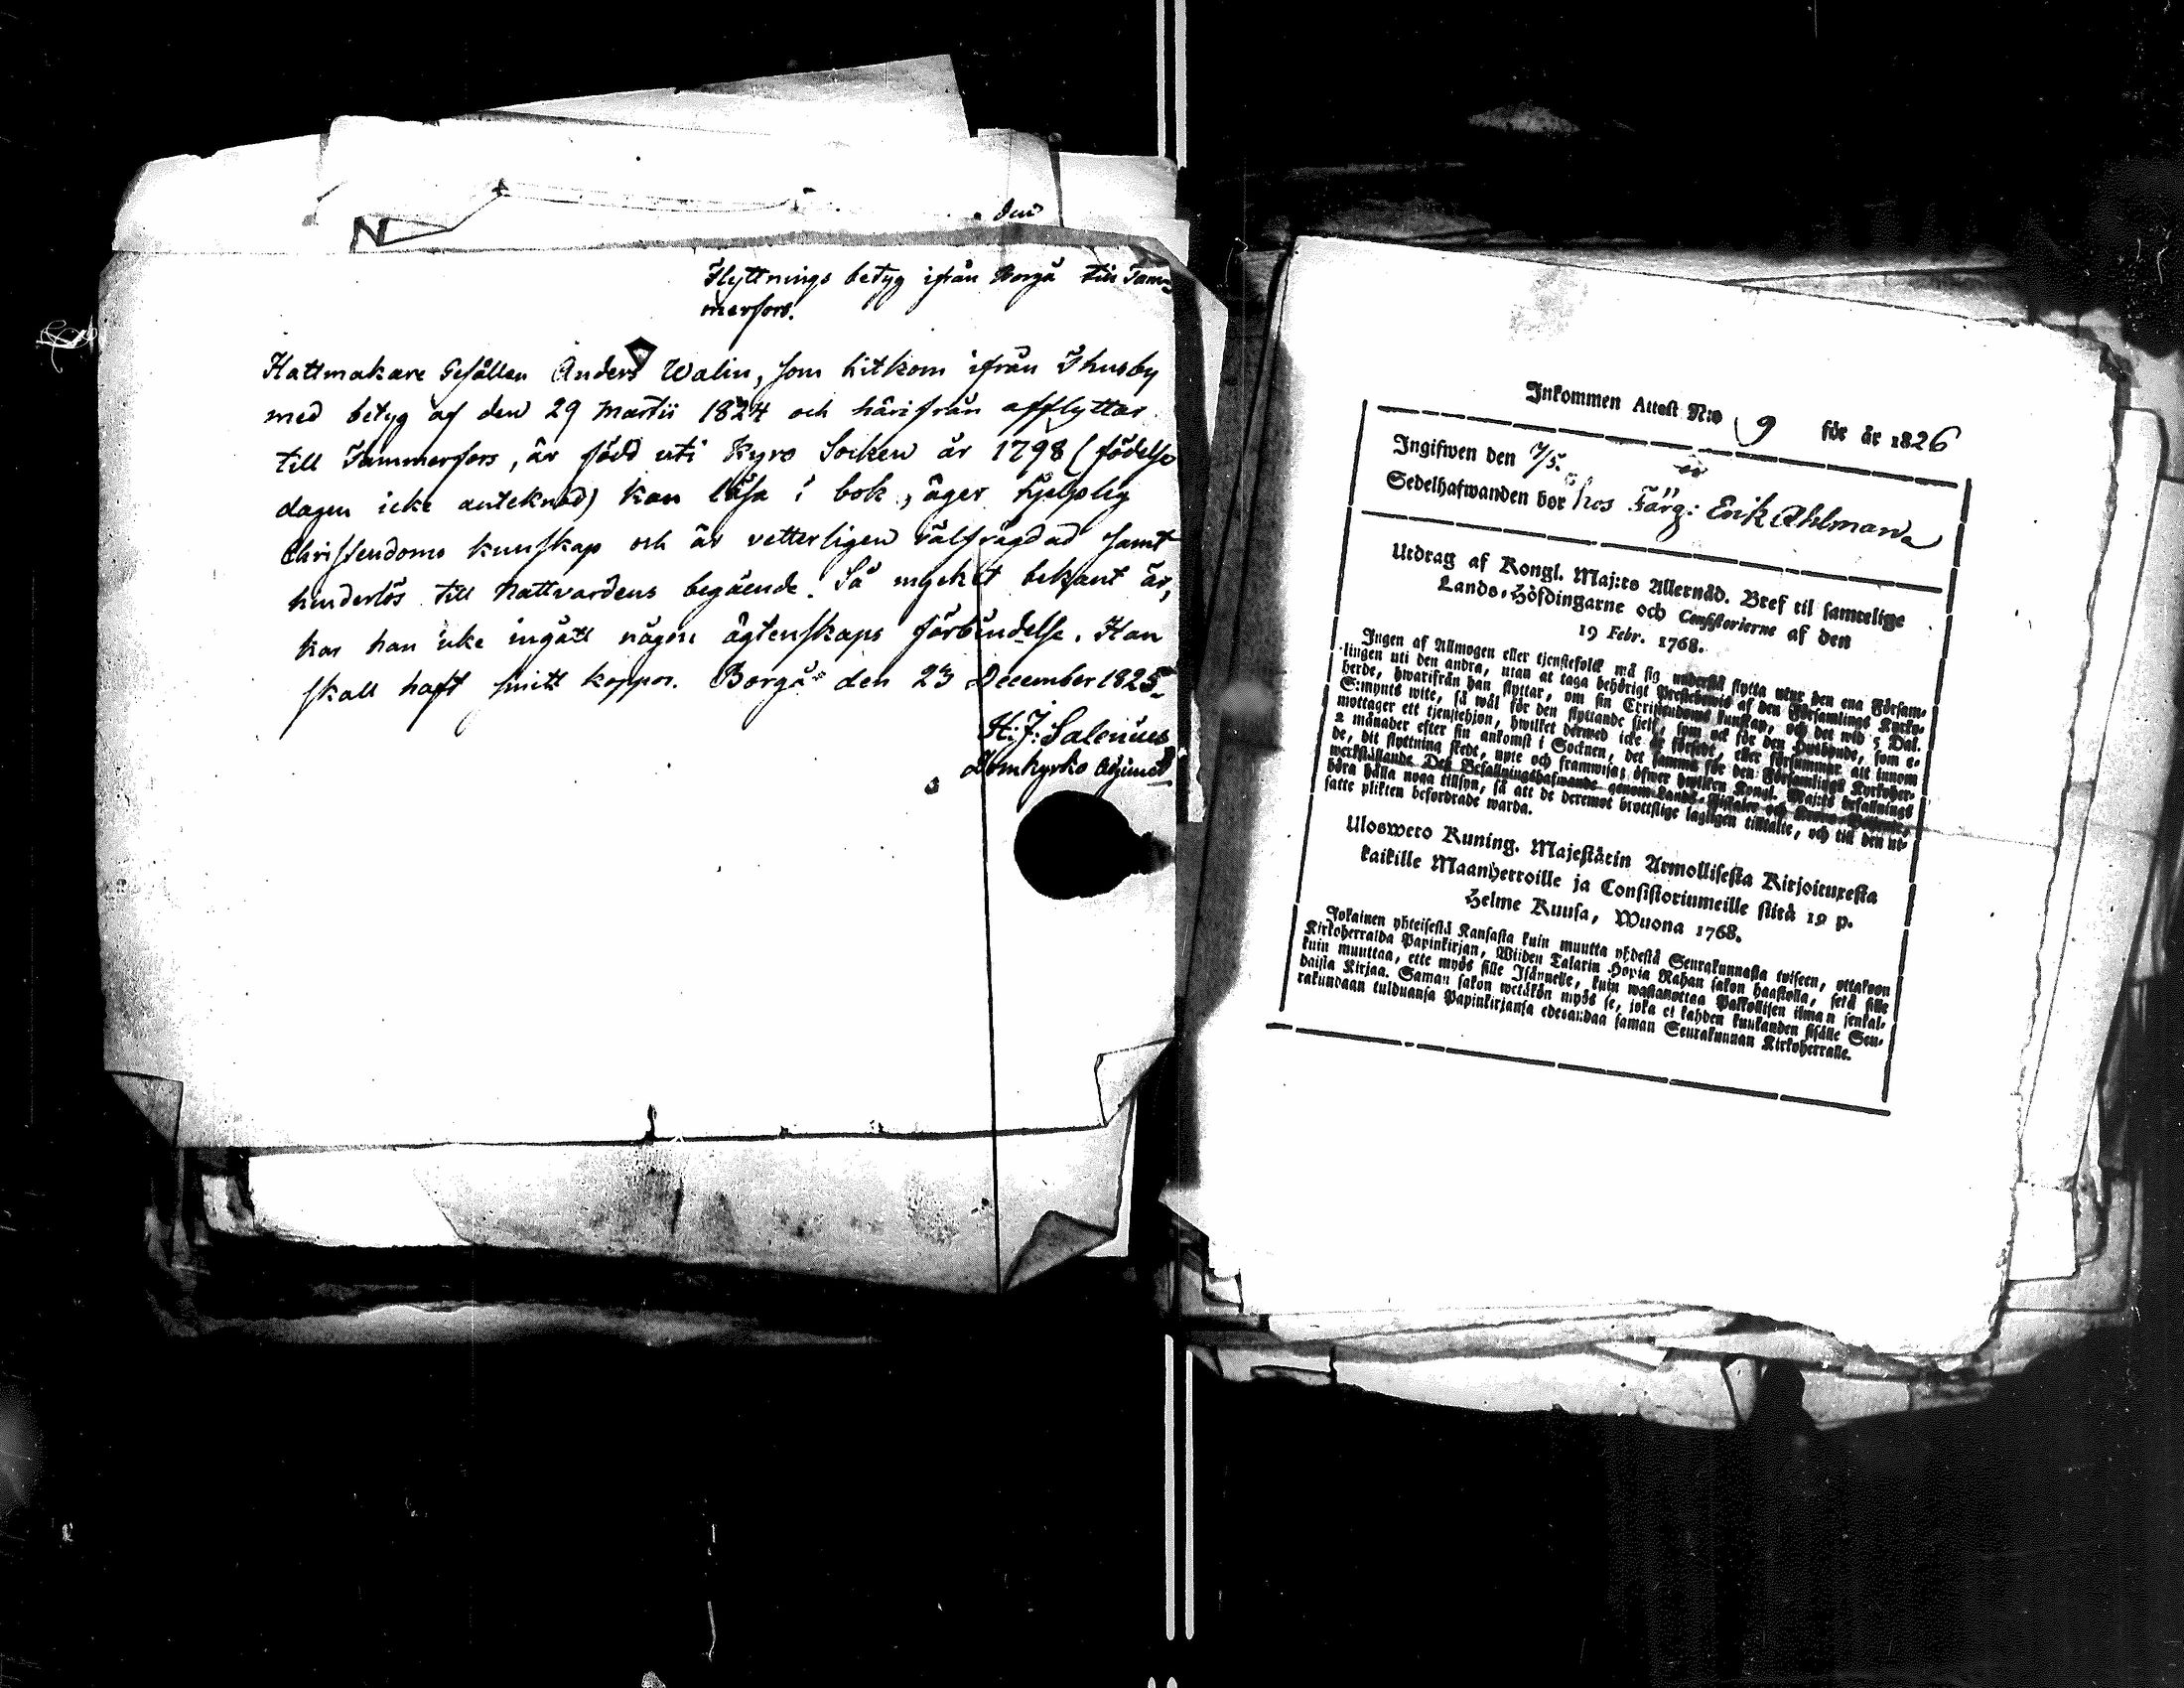 den
Flyttnings betyg ifrån Borgå till Tam-
merfors.
Hattmakare Gesällen Anders Walin, som hitkom ifrån Thusby
med betyg af den 29 Martii 1824 och härifrån afflyttar
till Tammerfors, är född uti Kyro Socken år 1798 (födelse
dagen icke anteknad) kan läsa i bok, äger hjelplig
Christendoms kunskap och är vetterligen välfrägdad samt
hinderlös till Nattvardens begående. Så mycket bekant är,
har han icke ingått någon ägtenskaps förbindelse. Han
skall haft smitt koppor. Borgå den 23 December 1825.
H: J: Salenius
Domkyrko Adjunct
Inkommen Attest N:o 9 för år 1826
Ingifwen den 7/5.
Sedelhafwanden bor hos Färg: Erik Ahlman
Utdrag af Kongl. Maj:ts Allernåd. Bref til samtelige
Lands-Höfdingarne och Consistorierne af den
19 Febr. 1768.
Ingen af Allmogen eller tjenstefolk må sig understå flytta utur den ena Försam-
lingen uti den andra, utan at taga behörigt Prestebewis af den Församlings Kyrko-
herde, hwarifrån han flyttar, om sin Christendoms kunskap, och det wid 5 Dal.
S:mynts wite, så wäl för den flyttande sjelf, som ock för den Husbonde, som e-
mottager ett tjenstehjon, hwilket dermed icke är försedt, eller försummar att innom
2 månader efter sin ankomst i Socknen, det samma för den Församlings Kyrkoher-
de, dit flyttning skedt, upte och framwisa; öfwer hwilken Kongl. Maj:ts befallnings
werkställande Des Befallningshafwande genom Lands-Fiskaler och Krono-Betjente,
böra hålla noga tillsyn, så att de deremot brottslige lagligen tilltalte, och till den ut-
satte plikten befordrade warda.
Uloswero Kuning. Majestätin Armollisesta Kirjoituxesta
kaikille Maanherroille ja Consistoriumeille siitä 19 p.
Helme Kuusa, Wuona 1768.
Jokainen yhteisestä Kansasta kuin muutta yhdestä Seurakunnasta toiseen, ottakoon
Kirkoherralda Papinkirjan, Wiiden Talarin Hopia Rahan sakon haastolla, sekä sille
kuin muuttaa, ette myös sille Isännelle, kuin wastanottaa Palkollisen ilman senkal-
daista Kirjaa. Saman sakon wetäkön myös se, joka ei kahden kuukauden sisälle Seu-
rakundaan tulduansa Papinkirjansa edesandaa saman Seurakunnan Kirkoherralle.